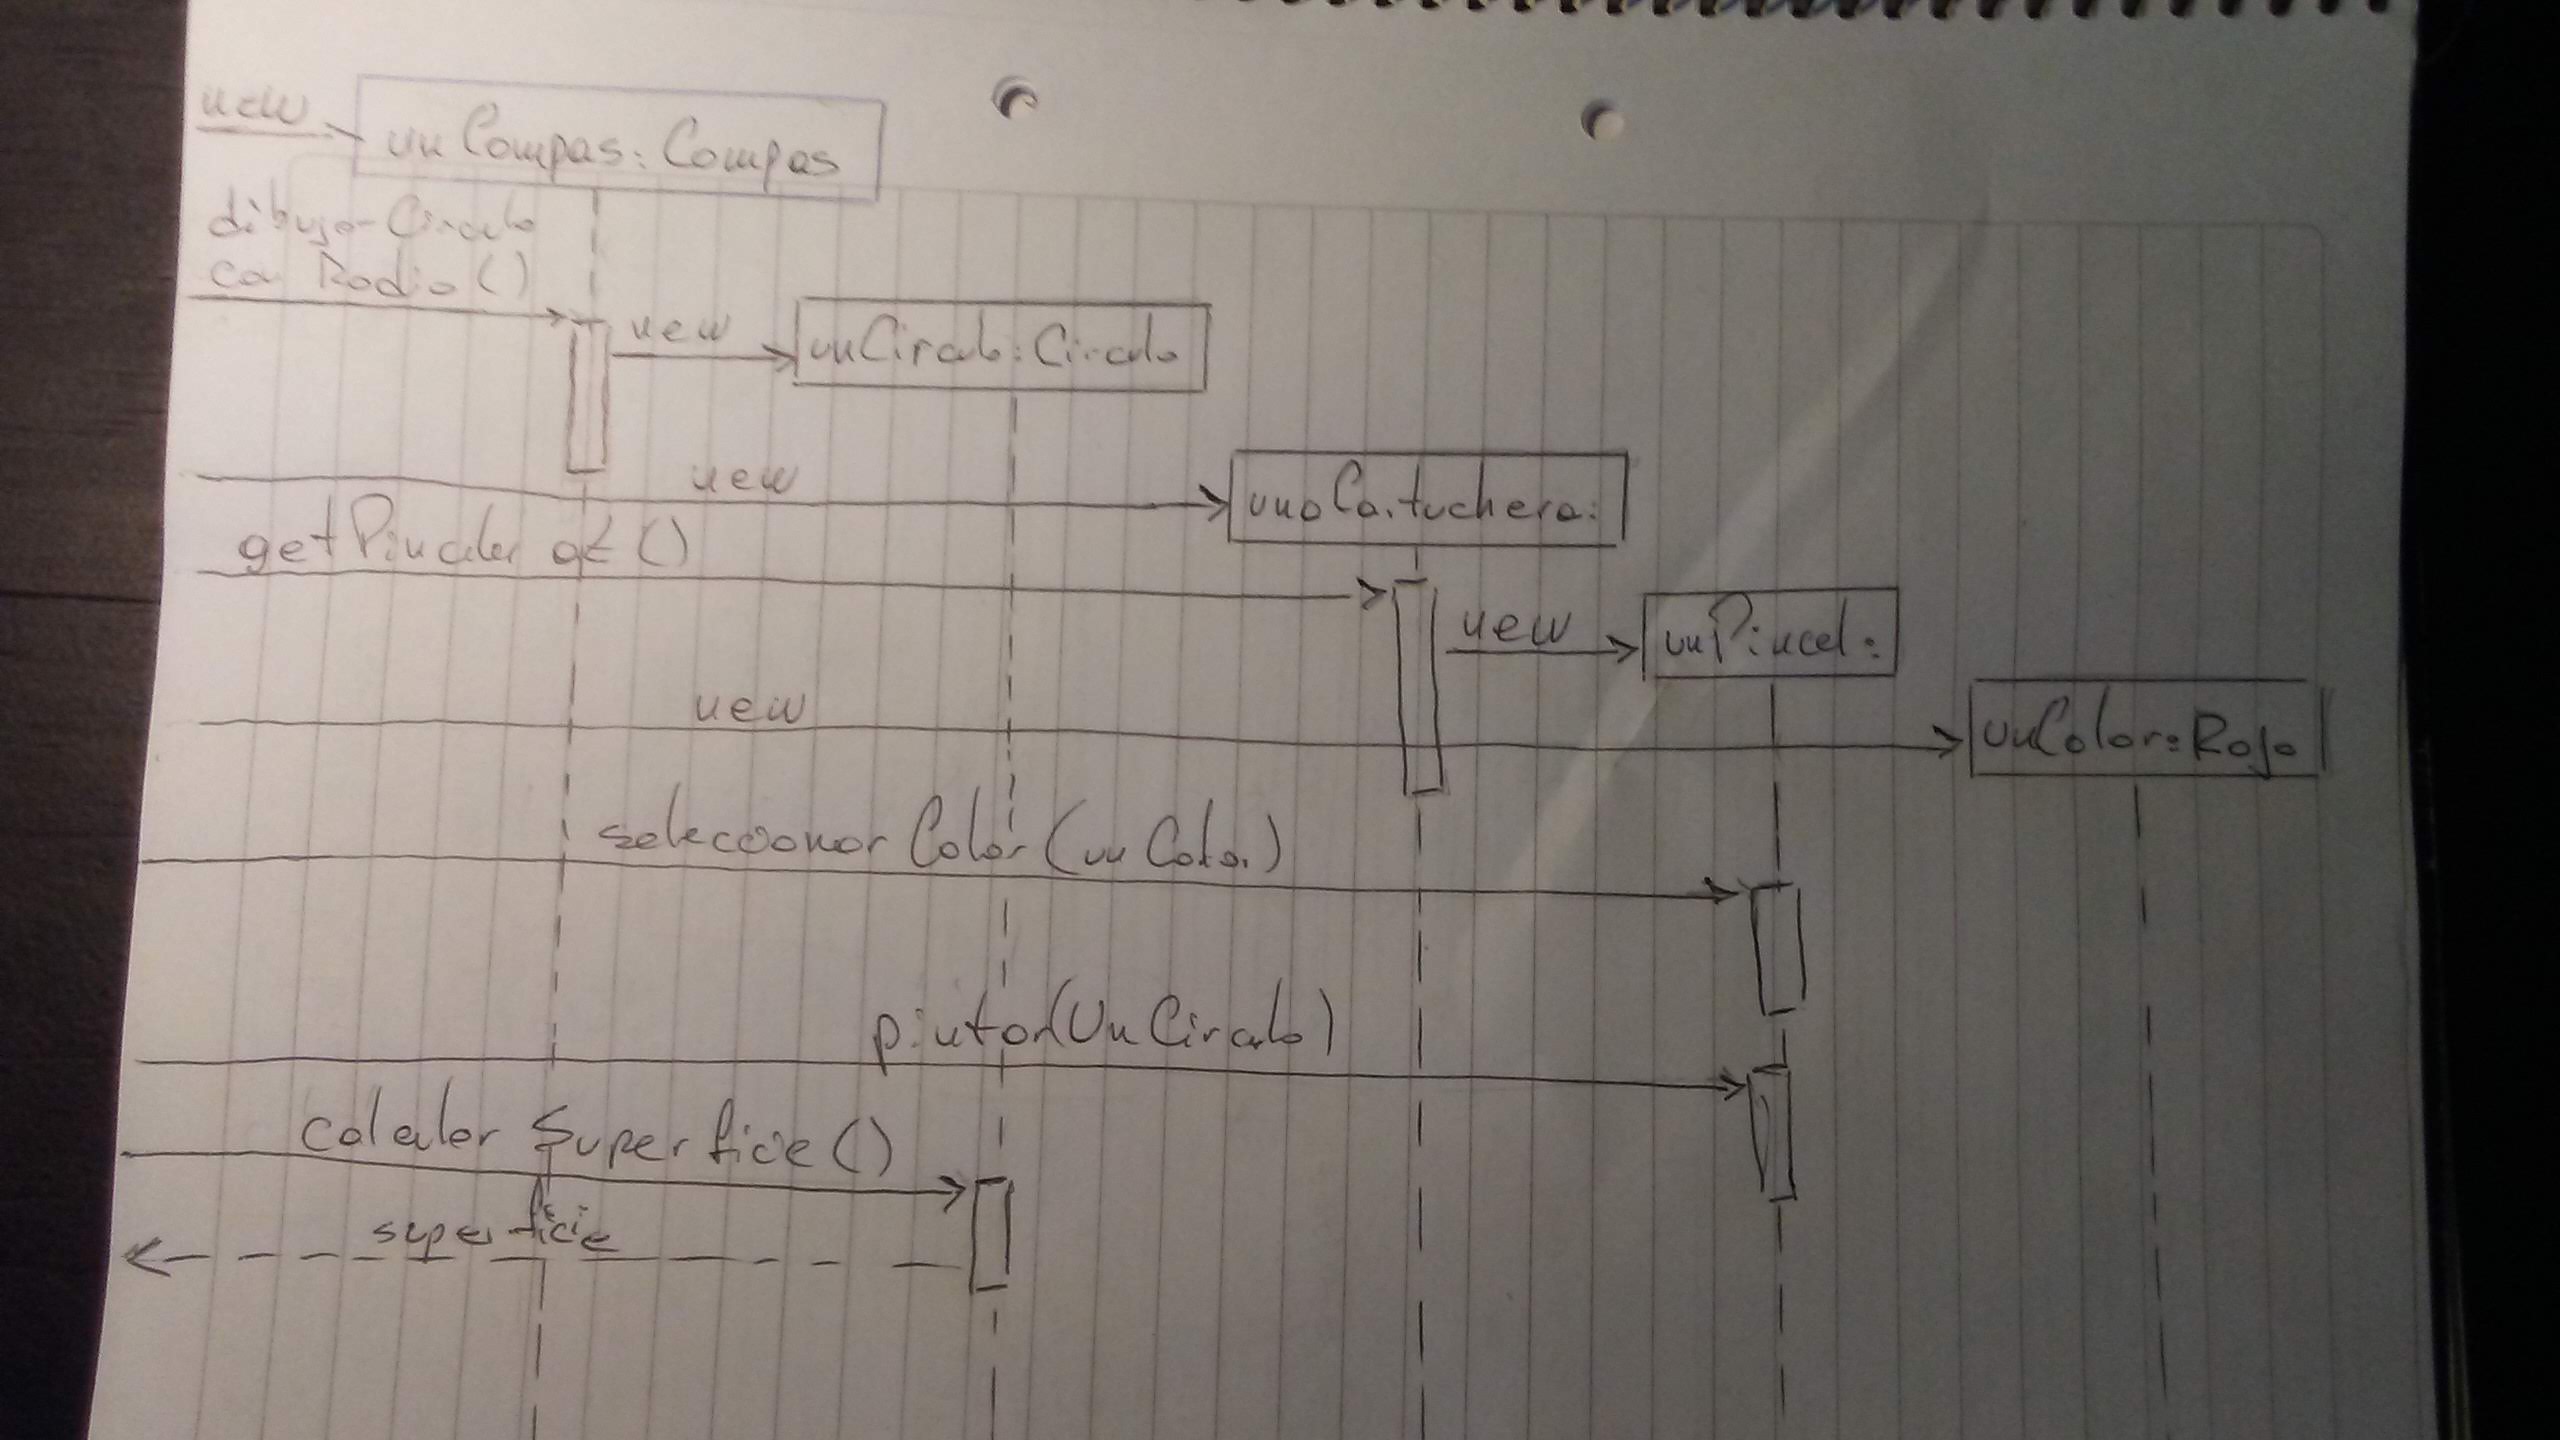 new
unCompas: Compas
dibujarCirculo
con Radio()
new
unCirculo: Circulo
new
unaCartuchera:
getPinceles at ()
new
unPincel:
new
unColor: Rojo
seleccionar Color (un Color)
pintar(Un Circulo)
calcular Superficie()
superficie